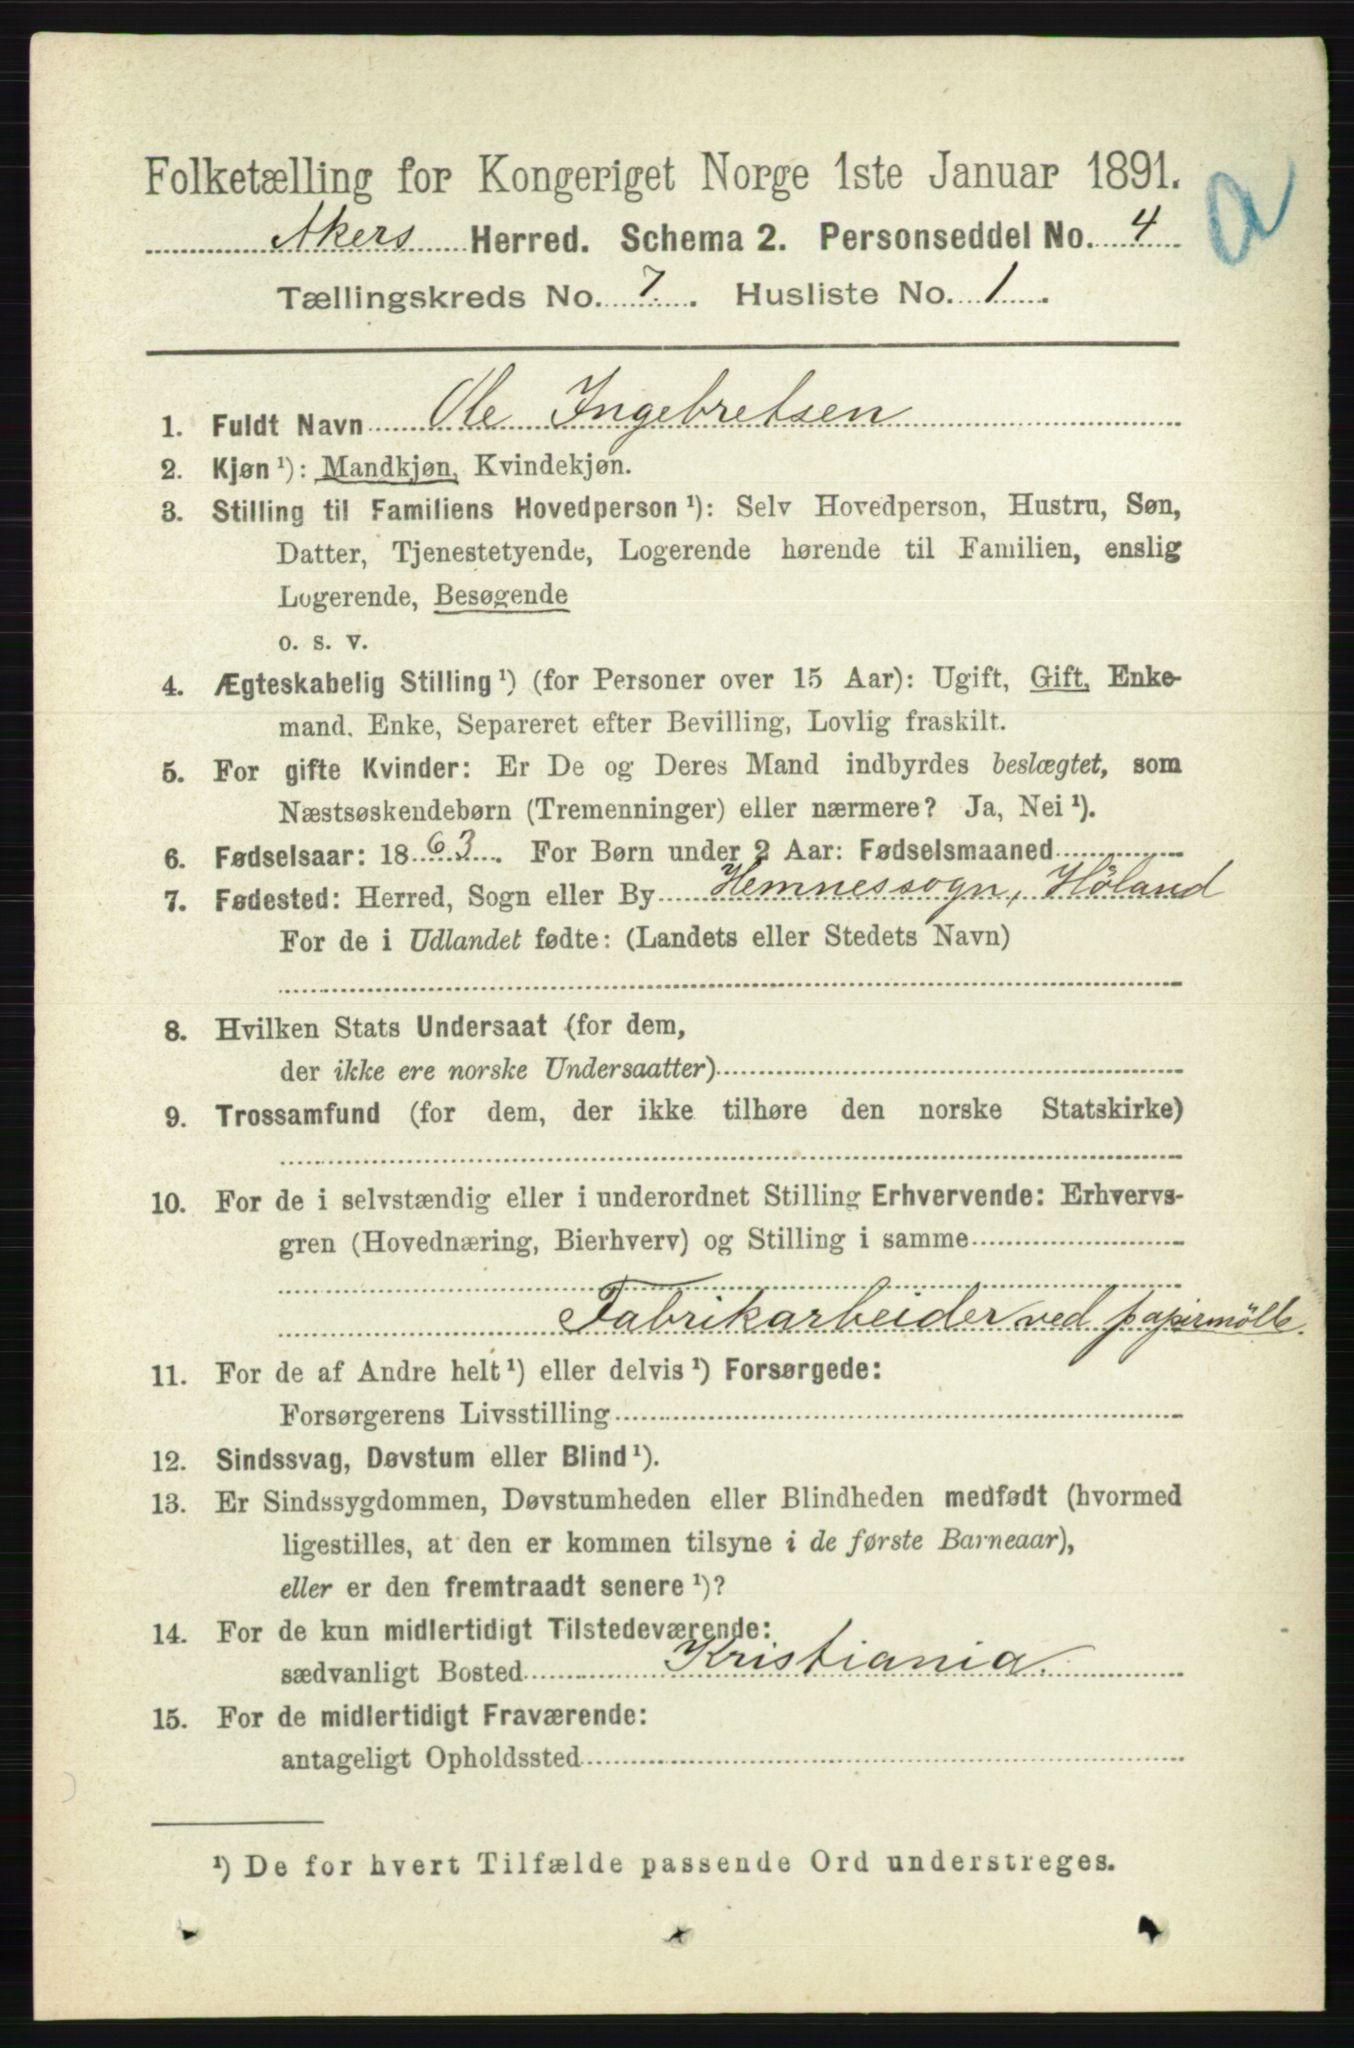 Folketælling for Kongeriget Norge 1ste Januar 1891.
a
Akers Herred. Schema 2. Personseddel No. 4
Tællingskreds No. 7. Husliste No. 1.
1. Fuldt Navn Ole Ingebretsen
2. Kjøn ¹): Mandkjøn, Kvindekjøn.
3. Stilling til Familiens Hovedperson ¹): Selv Hovedperson, Hustru, Søn,
Datter, Tjenestetyende, Logerende hørende til Familien, enslig
Logerende, Besøgende
o. s. v.
4. Ægteskabelig Stilling ¹) (for Personer over 15 Aar): Ugift, Gift, Enke-
mand, Enke, Separeret efter Bevilling, Lovlig fraskilt.
5. For gifte Kvinder: Er De og Deres Mand indbyrdes beslægtet, som
Næstsøskendebørn (Tremenninger) eller nærmere? Ja, Nei ¹).
6. Fødselsaar: 1863. For Børn under 2 Aar: Fødselsmaaned
7. Fødested: Herred, Sogn eller By Hemnessogn, Höland
For de i Udlandet fødte: (Landets eller Stedets Navn)
8. Hvilken Stats Undersaat (for dem,
der ikke ere norske Undersaatter)
9. Trossamfund (for dem, der ikke tilhøre den norske Statskirke)
10. For de i selvstændig eller i underordnet Stilling Erhvervende: Erhvervs-
gren (Hovednæring, Bierhverv) og Stilling i samme
Fabrikarbeider ved papirmölle.
11. For de af Andre helt ¹) eller delvis ¹) Forsørgede:
Forsørgerens Livsstilling
12. Sindssvag, Døvstum eller Blind ¹).
13. Er Sindssygdommen, Døvstumheden eller Blindheden medfødt (hvormed
ligestilles, at den er kommen tilsyne i de første Barneaar),
eller er den fremtraadt senere ¹)?
14. For de kun midlertidigt Tilstedeværende:
sædvanligt Bosted Kristiania.
15. For de midlertidigt Fraværende:
antageligt Opholdssted
¹) De for hvert Tilfælde passende Ord understreges.